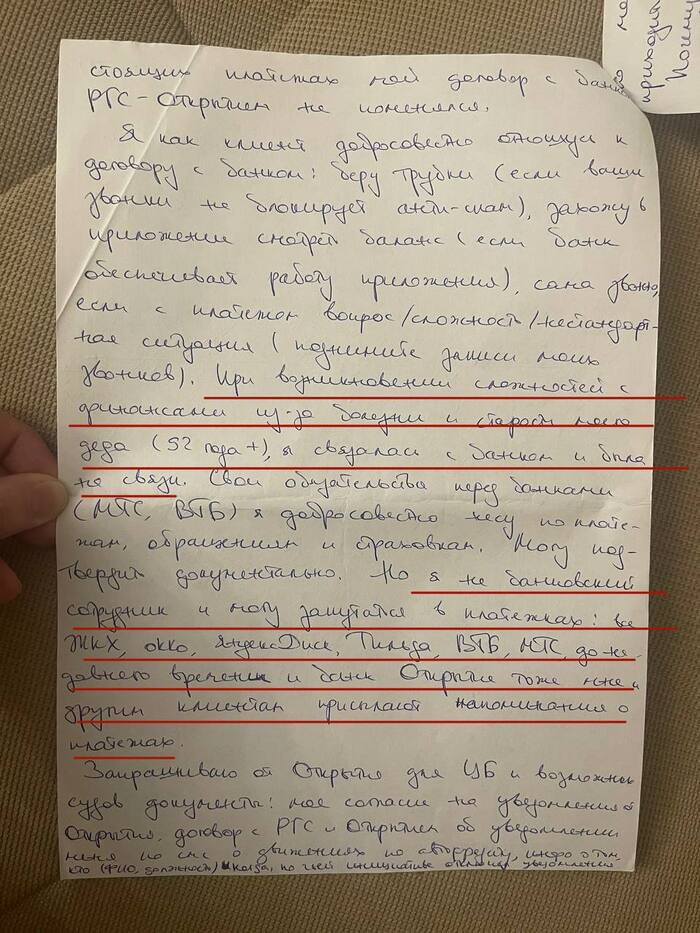 стоящих платежах мой договор с банком
РГС-Открытием не поменялся.
Я как клиент добросовестно отношусь к
договору с банком: беру трубки (если ваши
звонки не блокирует анти-спам), захожу в
приложении смотреть баланс (если банк
обеспечивает работу приложения), сама звоню,
если с платежом вопрос/сложность/нестандарт-
ная ситуация (поднимите записи моих
звонков). При возникновении сложностей с
финансами из-за болезни и старости моего
деда (92 года+), я связалась с банком и была
на связи. Свои обязательства перед банками
(МТС, ВТБ) я добросовестно несу по плате-
жам, обращениям и страховкам. Могу под-
твердить документально. Но я не банковский
сотрудник и могу запутатся в платежках: все
ЖКХ, окко, ЯндексДиск, Тильда, ВТБ, МТС, до не-
давнего времени и банк Открытие тоже мне и
другим клиентам присылают напоминания о
платежах.
Запрашиваю от Открытия для ЦБ и возможных
судов документы: мое согласие на уведомления от
Открытия, договор с РГС и Открытием об уведомлении
меня по смс о движениях по автокредиту, инфо о том
кто (ФИО, должность) и когда, по чьей инициативе отключил уведомления
приходи